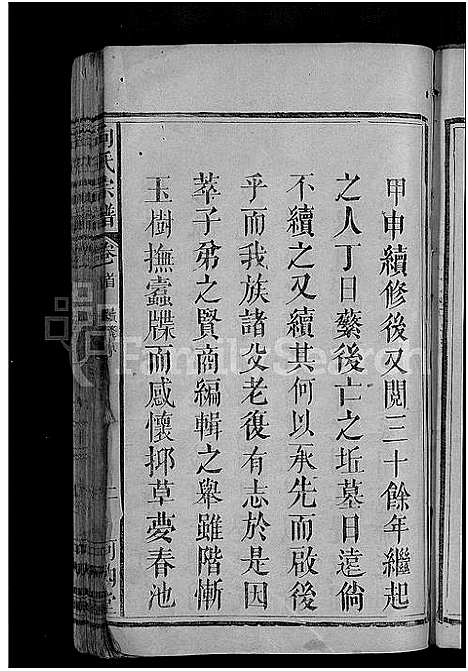 甲申續修後又閱三十餘年繼起
之人丁日蘩後亡之坵墓日遠倘
不續之又續其何以承先而啟後
乎而我族諸父老復有志於是因
萃子弟之賢商編輯之舉雖階慚
玉樹撫蠧牒而感懷抑草夢春池
向氏宗譜
卷首
河內堂
FamilySearch